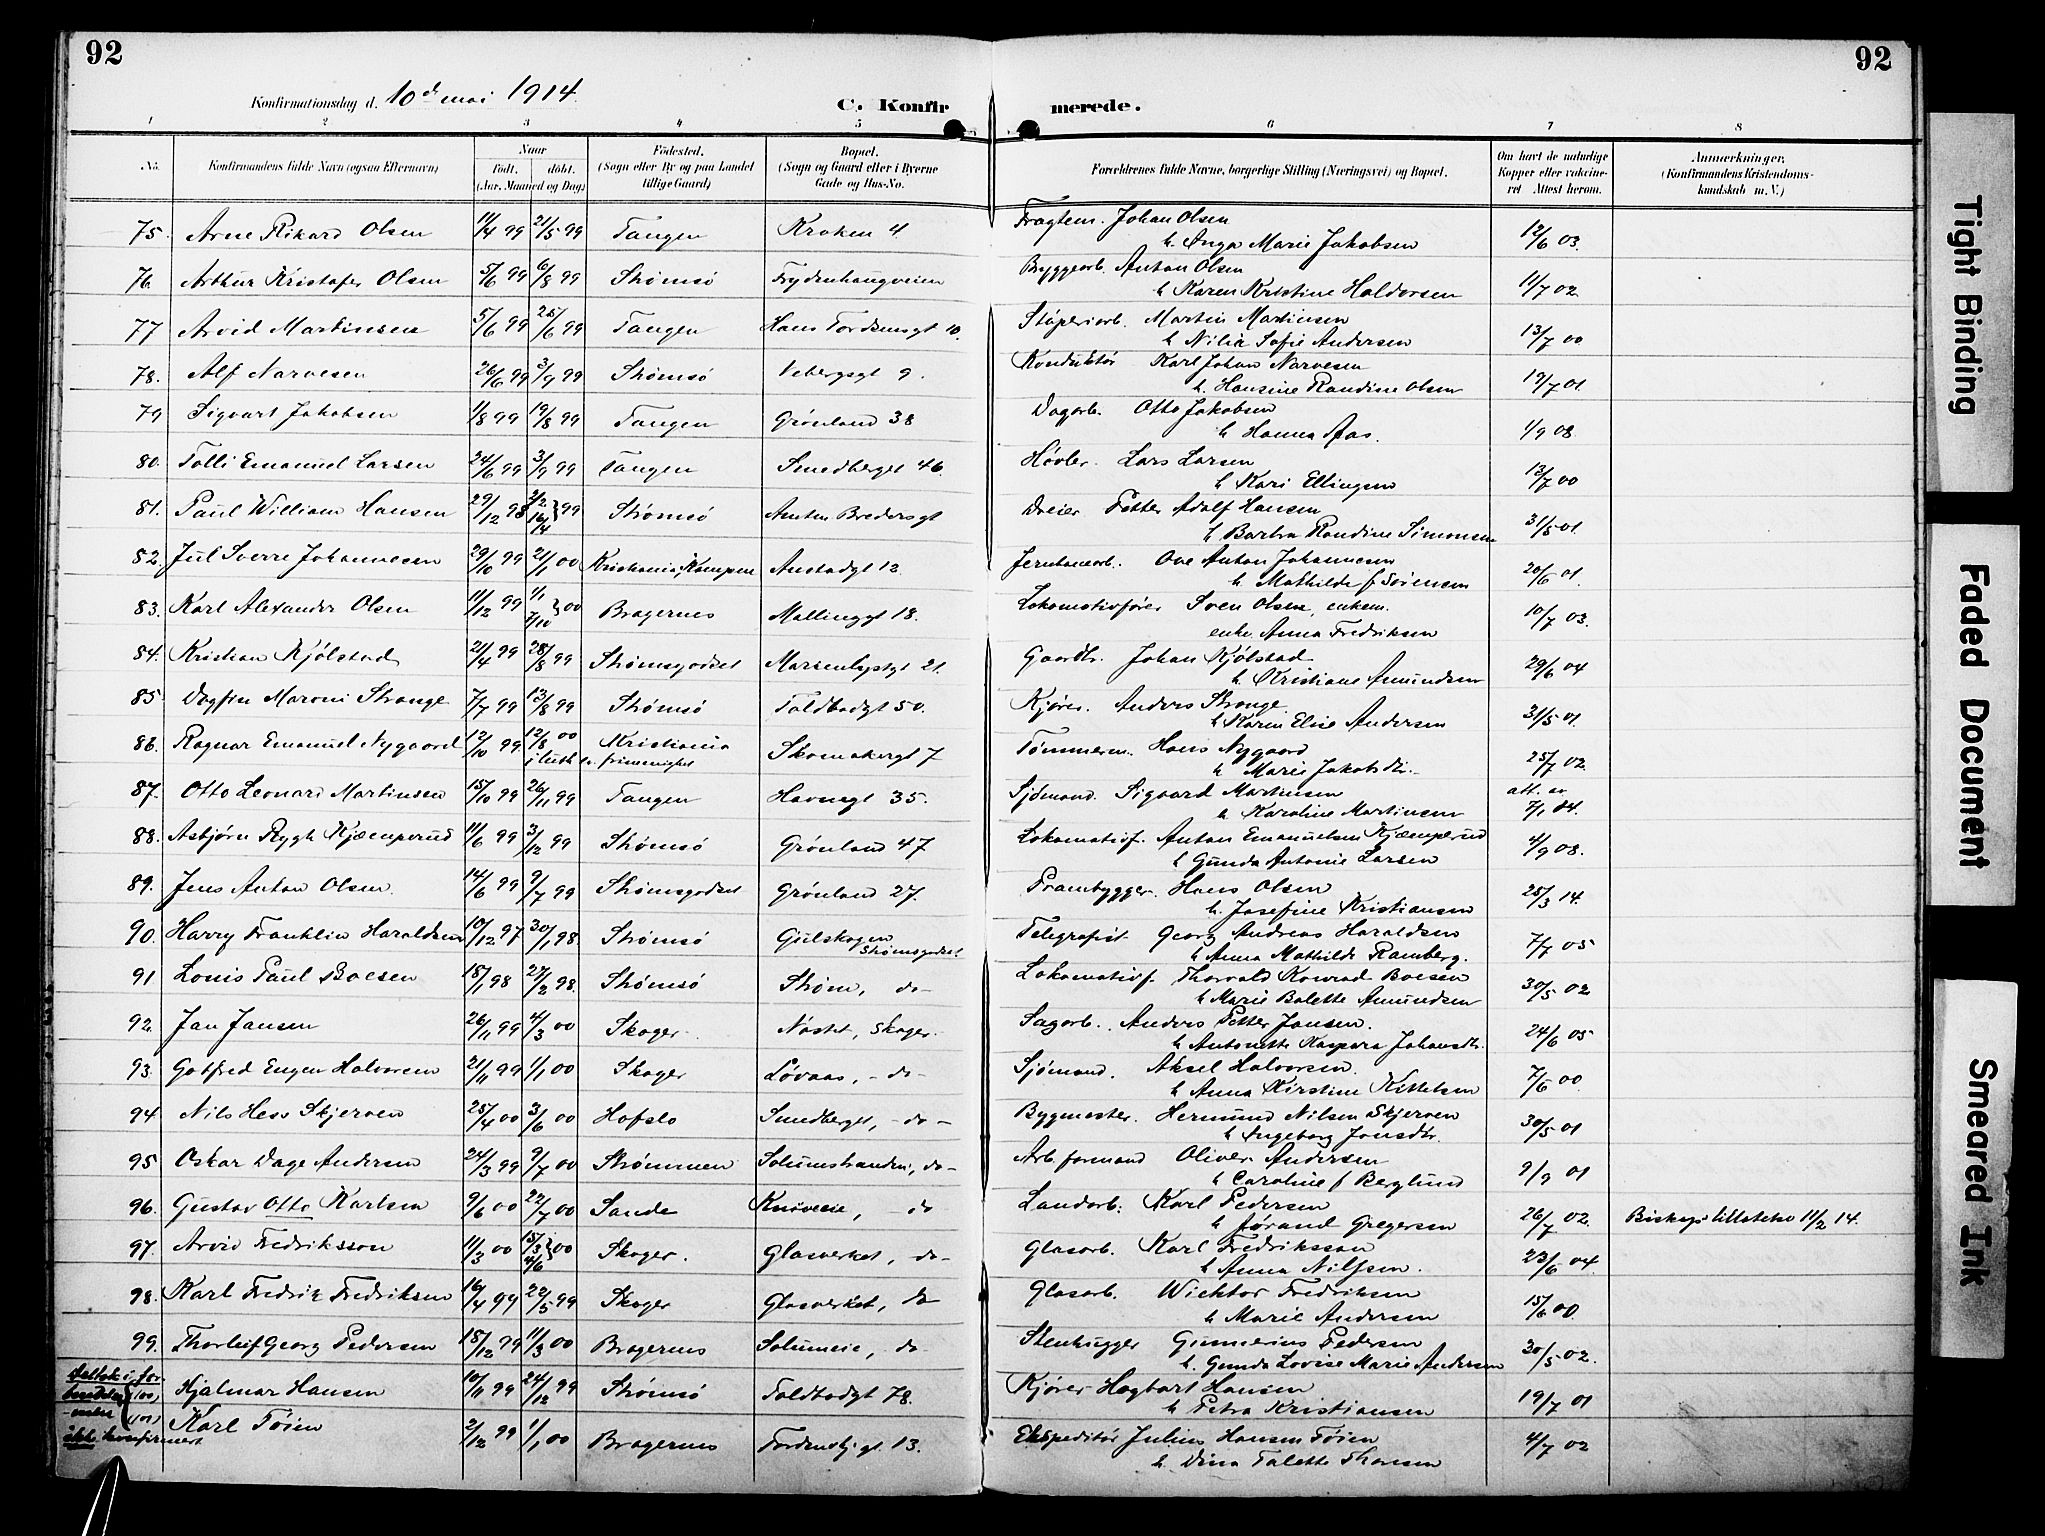 92
92
Konfirmationsdag d. 10de mai 1914.
C. Konfirmerede.
1 2 3 4 5 6 7 8
No. Konfirmandens fulde Navn (ogsaa Efternavn) Naar født, døbt. (Aar, Maaned og Dag) Fødested. (Sogn eller By og paa Landet tillige Gaard) Bopæl. (Sogn og Gaard eller i Byerne Gade og Hus-No. Forældrenes fulde Navne, borgerlige Stilling (Næringsvei) og Bopæl. Om havt de naturlige Kopper eller vaccineret Attest herom. Anmerkninger. (Konfirmandens Kristendomskundskab m. V.)
75. Arne Rikard Olsen 11/4 99 21/5 99 Tangen Kroken 4. Fragtem. Johan Olsen 12/6 03.
h. Inga Marie Jakobsen
76. Arthur Kristofer Olsen 5/6 99 6/8 99 Strømsø Frydenhaugveien Bryggearb. Anton Olsen 11/7 02
h Karen Kristine Haldorsen
77. Arvid Martinsen 5/6 99 25/6 99 Tangen Hans Tordsensgt 10. Støperiarb. Martin Martinsen 13/7 00
h Nilia Sofie Andersen
78. Alf Narvesen 26/6 99 3/9 99 Strømsø Vebergsgt 9. Konduktør Karl Johan Narvesen 19/7 01
h. Hansine Randine Olsen
79 Sigvart Jakobsen 1/8 99 19/8 99 Tangen Grønland 38 Dagarb. Otto Jakobsen 1/9 08
h Hanna Aas.
80. Tolli Emanuel Larsen 24/6 99 3/9 99 Tangen Smedberget 46. Høvler. Lars Larsen 13/7 00
h Kari Ellingsen
81. Paul William Hansen 29/12 98 2/2 16/4 } 99 Strømsø Anton Bredersgt Dreier Petter Adolf Hansen 31/5 01.
h Barbra Randine Simonsen
82. Jul Sverre Johannesen 29/10 99 21/1 00 Kristiania, Kampen Austadgt 12. Jernbanearb. Ove Anton Johannesen 20/6 01.
h. Mathilde f Sørensen
83. Karl Alexander Olsen 11/12 99 1/1 7/10 } 00 Bragernes Mallinggt 18. Lokomotivfører Sven Olsen, enkem. 10/7 03.
enke Anna Fredriksen
84. Kristian Kjølstad 21/4 99 28/8 99 Strømsgodset Marienlystgt 21. Gaardbr. Johan Kjølstad 29/6 04
h. Kristiane Amundsen
85. Dagfin Maroni Strange 7/7 99 13/8 99 Strømsø Toldbodgt 50. Kjører. Anders Strange 31/5 01.
h Karen Elise Andersen
86. Ragnar Emanuel Nygaard 12/10 99. 12/8 00 Kristiania Skomakergt 7 Tømmerm. Hans Nygaard 25/7 02.
i luth. frimenighet h Marie Jakobsdtr.
87. Otto Leonard Martinsen 15/10 99 26/11 99 Tangen Havnegt 35. Sjømand. Sigvard Martinsen att. av 7/1 04.
h Karoline Martinsen
88. Asbjørn Rygh Kjæmperud 11/6 99 3/12 99 Strømsø Grønland 47 Lokomotivf. Anton Emanuelsen Kjæmperud 4/9 08.
h Gunda Antonie Larsen
89. Jens Anton Olsen. 14/6 99 9/7 99 Strømsgodset Grønland 27. Prambygger. Hans Olsen 25/3 14.
h. Josefine Kristiansen
90. Harry Franklin Haraldsen 10/12 97 30/1 98. Strømsø Gulskogen Strømsgodset Telegrafist Georg Andreas Haraldsen 7/7 05
h Anna Mathilde Ramberg.
91 Louis Paul Boesen 18/1 98 27/2 98. Strømsø Strøm, do- Lokomotivf. Thorvald Konrad Boesen 30/5 02
h Marie Bolette Amundsen
92. Jan Jansen 26/11 99 4/3 00 Skoger. Nøstet, Skoger. Sagarb. Anders Petter Jansen. 24/6 05
h Antonette Kaspara Johansdtr.
93. Gotfred Eugen Halvorsen 21/11 99 1/1 00 Skoger Løvaas, -do- Sjømand. Aksel Halvorsen. 7/6 00.
h Anna Kirstine Kittelsen
94. Nils Hess Skjerven 25/4 00 3/6 00 Hofslo Smedberget, -do- Bygmester. Hermund Nilsen Skjerven 30/5 01
h Ingeborg Jonsdtr.
95 Oskar Dage Andersen 24/3 99 9/7 00 Strømmen Solumstranden, do- Arb. formand Oliver Andersen 9/9 01
h Caroline f Berglund
96. Gustav Otto Karlsen 9/6 00 22/7 00 Sande Knivveie, do Landarb. Karl Pedersen 26/7 02. Biskops tillatelse 11/2 14.
h Jørand Gregersen
97. Arvid Fredriksson 11/3 00 15/3 4/6 } 00 Skoger. Glasverket, do- Glasarb. Karl Fredriksson 23/6 04
h Anna Nilssen.
98. Karl Fredrik Fredriksen 16/4 99 22/5 99 Skoger Glasverket, do Glasarb. Wicktor Fredriksen 15/6 00.
h Marie Andersen
99. Thorleif Georg Pedersen 18/12 99 11/3 00 Bragernes Solumeie, do- Stenhugger Gunnerius Pedersen 30/5 02.
h. Gunda Lovise Marie Andersen
Deltok i forberedelsen (100) Hjalmar Hansen 10/11 99 24/12 99 Strømsø Toldbodgt 78. Kjører Hagbart Hansen 19/7 01
h Petra Kristiansen
(101) ikke konfirmert Karl Tøien 2/12 99 1/1 00 Bragernes Tordenskj. gt. 13. Ekspeditør Julius Hansen Tøien 4/7 02
h. Dina Talette Thorsen
Tight Binding
Faded Document
Smeared Ink